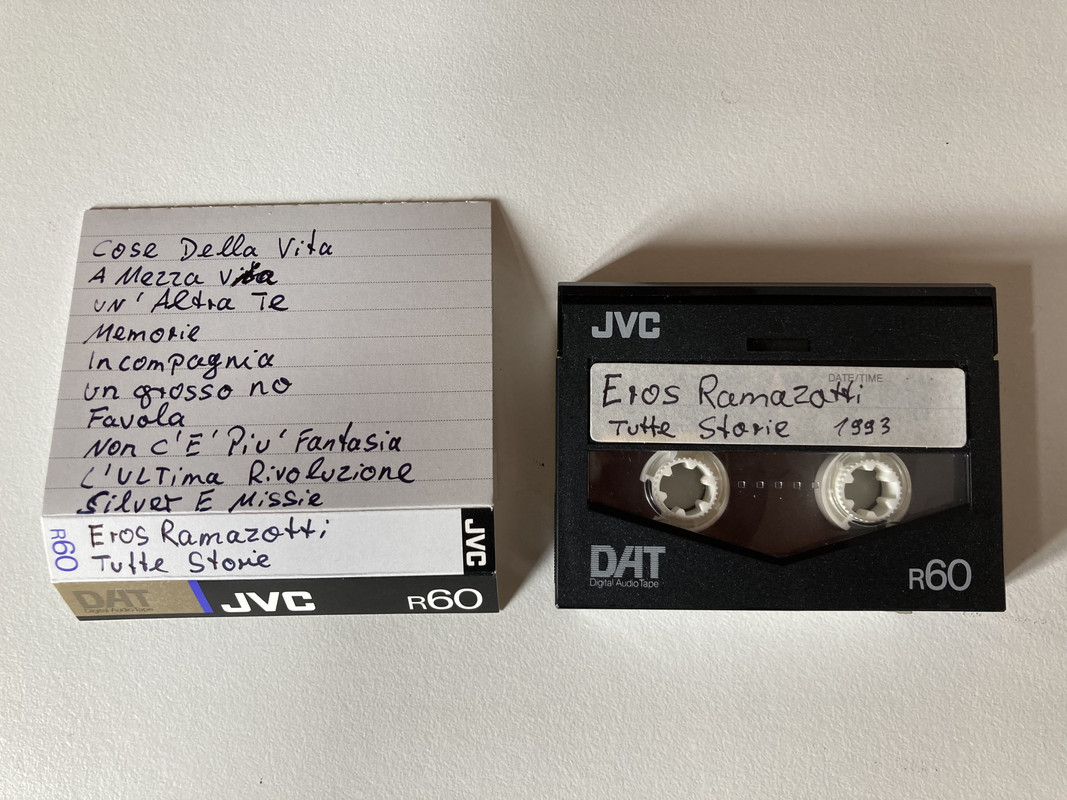 Cose Della Vita
A Mezza Vita
un' Altra Te
Memorie
In compagnia
un grosso no
Favola
Non C'E' Piu' Fantasia
L'ULTima Rivoluzione
Silver E Missie
R60
Eros Ramazotti
Tutte Storie
JVC
DAT
Digital Audio Tape
JVC
R60
JVC
DATE/TIME
Eros Ramazotti
Tutte Storie 1993
DAT
Digital Audio Tape
R60